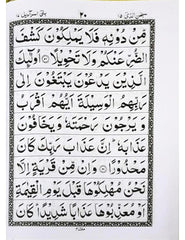 ٢٠
مِّنْ دُوْنِهٖ فَلَا يَمْلِكُوْنَ كَشْفَ
الضُّرِّ عَنْكُمْ وَلَا تَحْوِيْلًا ۝ اُولٰٓئِكَ
الَّذِيْنَ يَدْعُوْنَ يَبْتَغُوْنَ اِلٰى
رَبِّهِمُ الْوَسِيْلَةَ اَيُّهُمْ اَقْرَبُ
وَ يَرْجُوْنَ رَحْمَتَهٗ وَ يَخَافُوْنَ
عَذَابَهٗ ؕ اِنَّ عَذَابَ رَبِّكَ كَانَ
مَحْذُوْرًا ۝ وَاِنْ مِّنْ قَرْيَةٍ اِلَّا
نَحْنُ مُهْلِكُوْهَا قَبْلَ يَوْمِ الْقِيٰمَةِ
اَوْ مُعَذِّبُوْهَا عَذَابًا شَدِيْدًا ؕ كَانَ